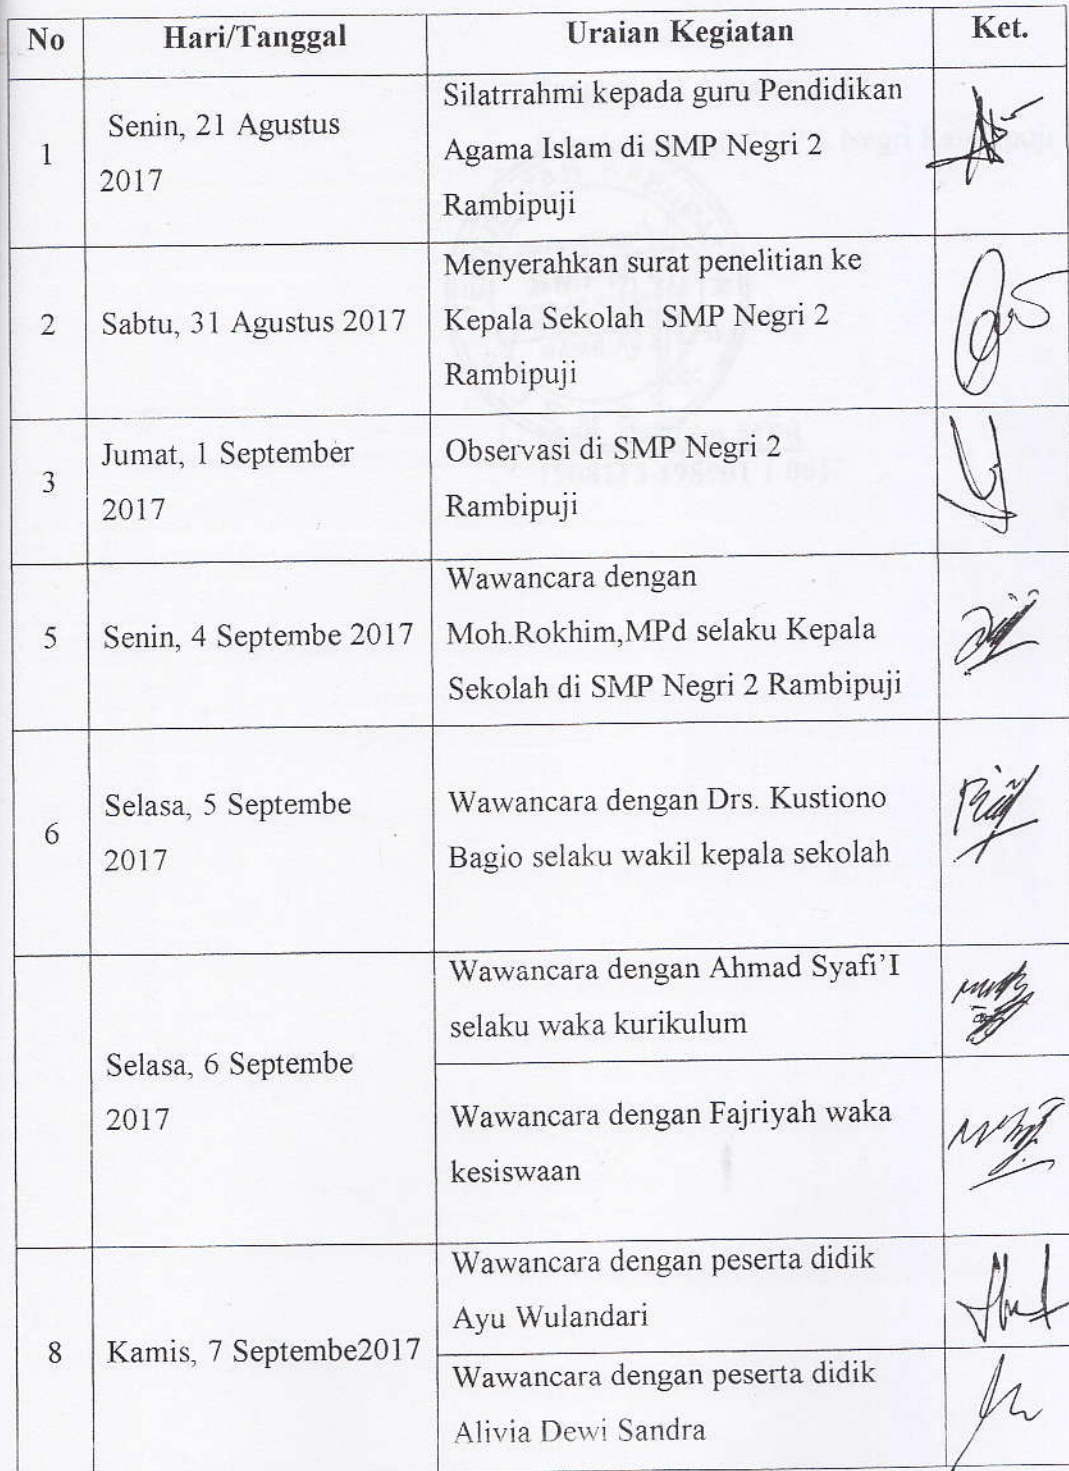 No Hari/Tanggal Uraian Kegiatan Ket.
1
Senin, 21 Agustus
2017
Silatrrahmi kepada guru Pendidikan
Agama Islam di SMP Negri 2
Rambipuji
2
Sabtu, 31 Agustus 2017
Menyerahkan surat penelitian ke
Kepala Sekolah SMP Negri 2
Rambipuji
3
Jumat, 1 September
2017
Observasi di SMP Negri 2
Rambipuji
5
Senin, 4 Septembe 2017
Wawancara dengan
Moh.Rokhim,MPd selaku Kepala
Sekolah di SMP Negri 2 Rambipuji
6
Selasa, 5 Septembe
2017
Wawancara dengan Drs. Kustiono
Bagio selaku wakil kepala sekolah
Selasa, 6 Septembe
2017
Wawancara dengan Ahmad Syafi'I
selaku waka kurikulum
Wawancara dengan Fajriyah waka
kesiswaan
8
Kamis, 7 Septembe2017
Wawancara dengan peserta didik
Ayu Wulandari
Wawancara dengan peserta didik
Alivia Dewi Sandra